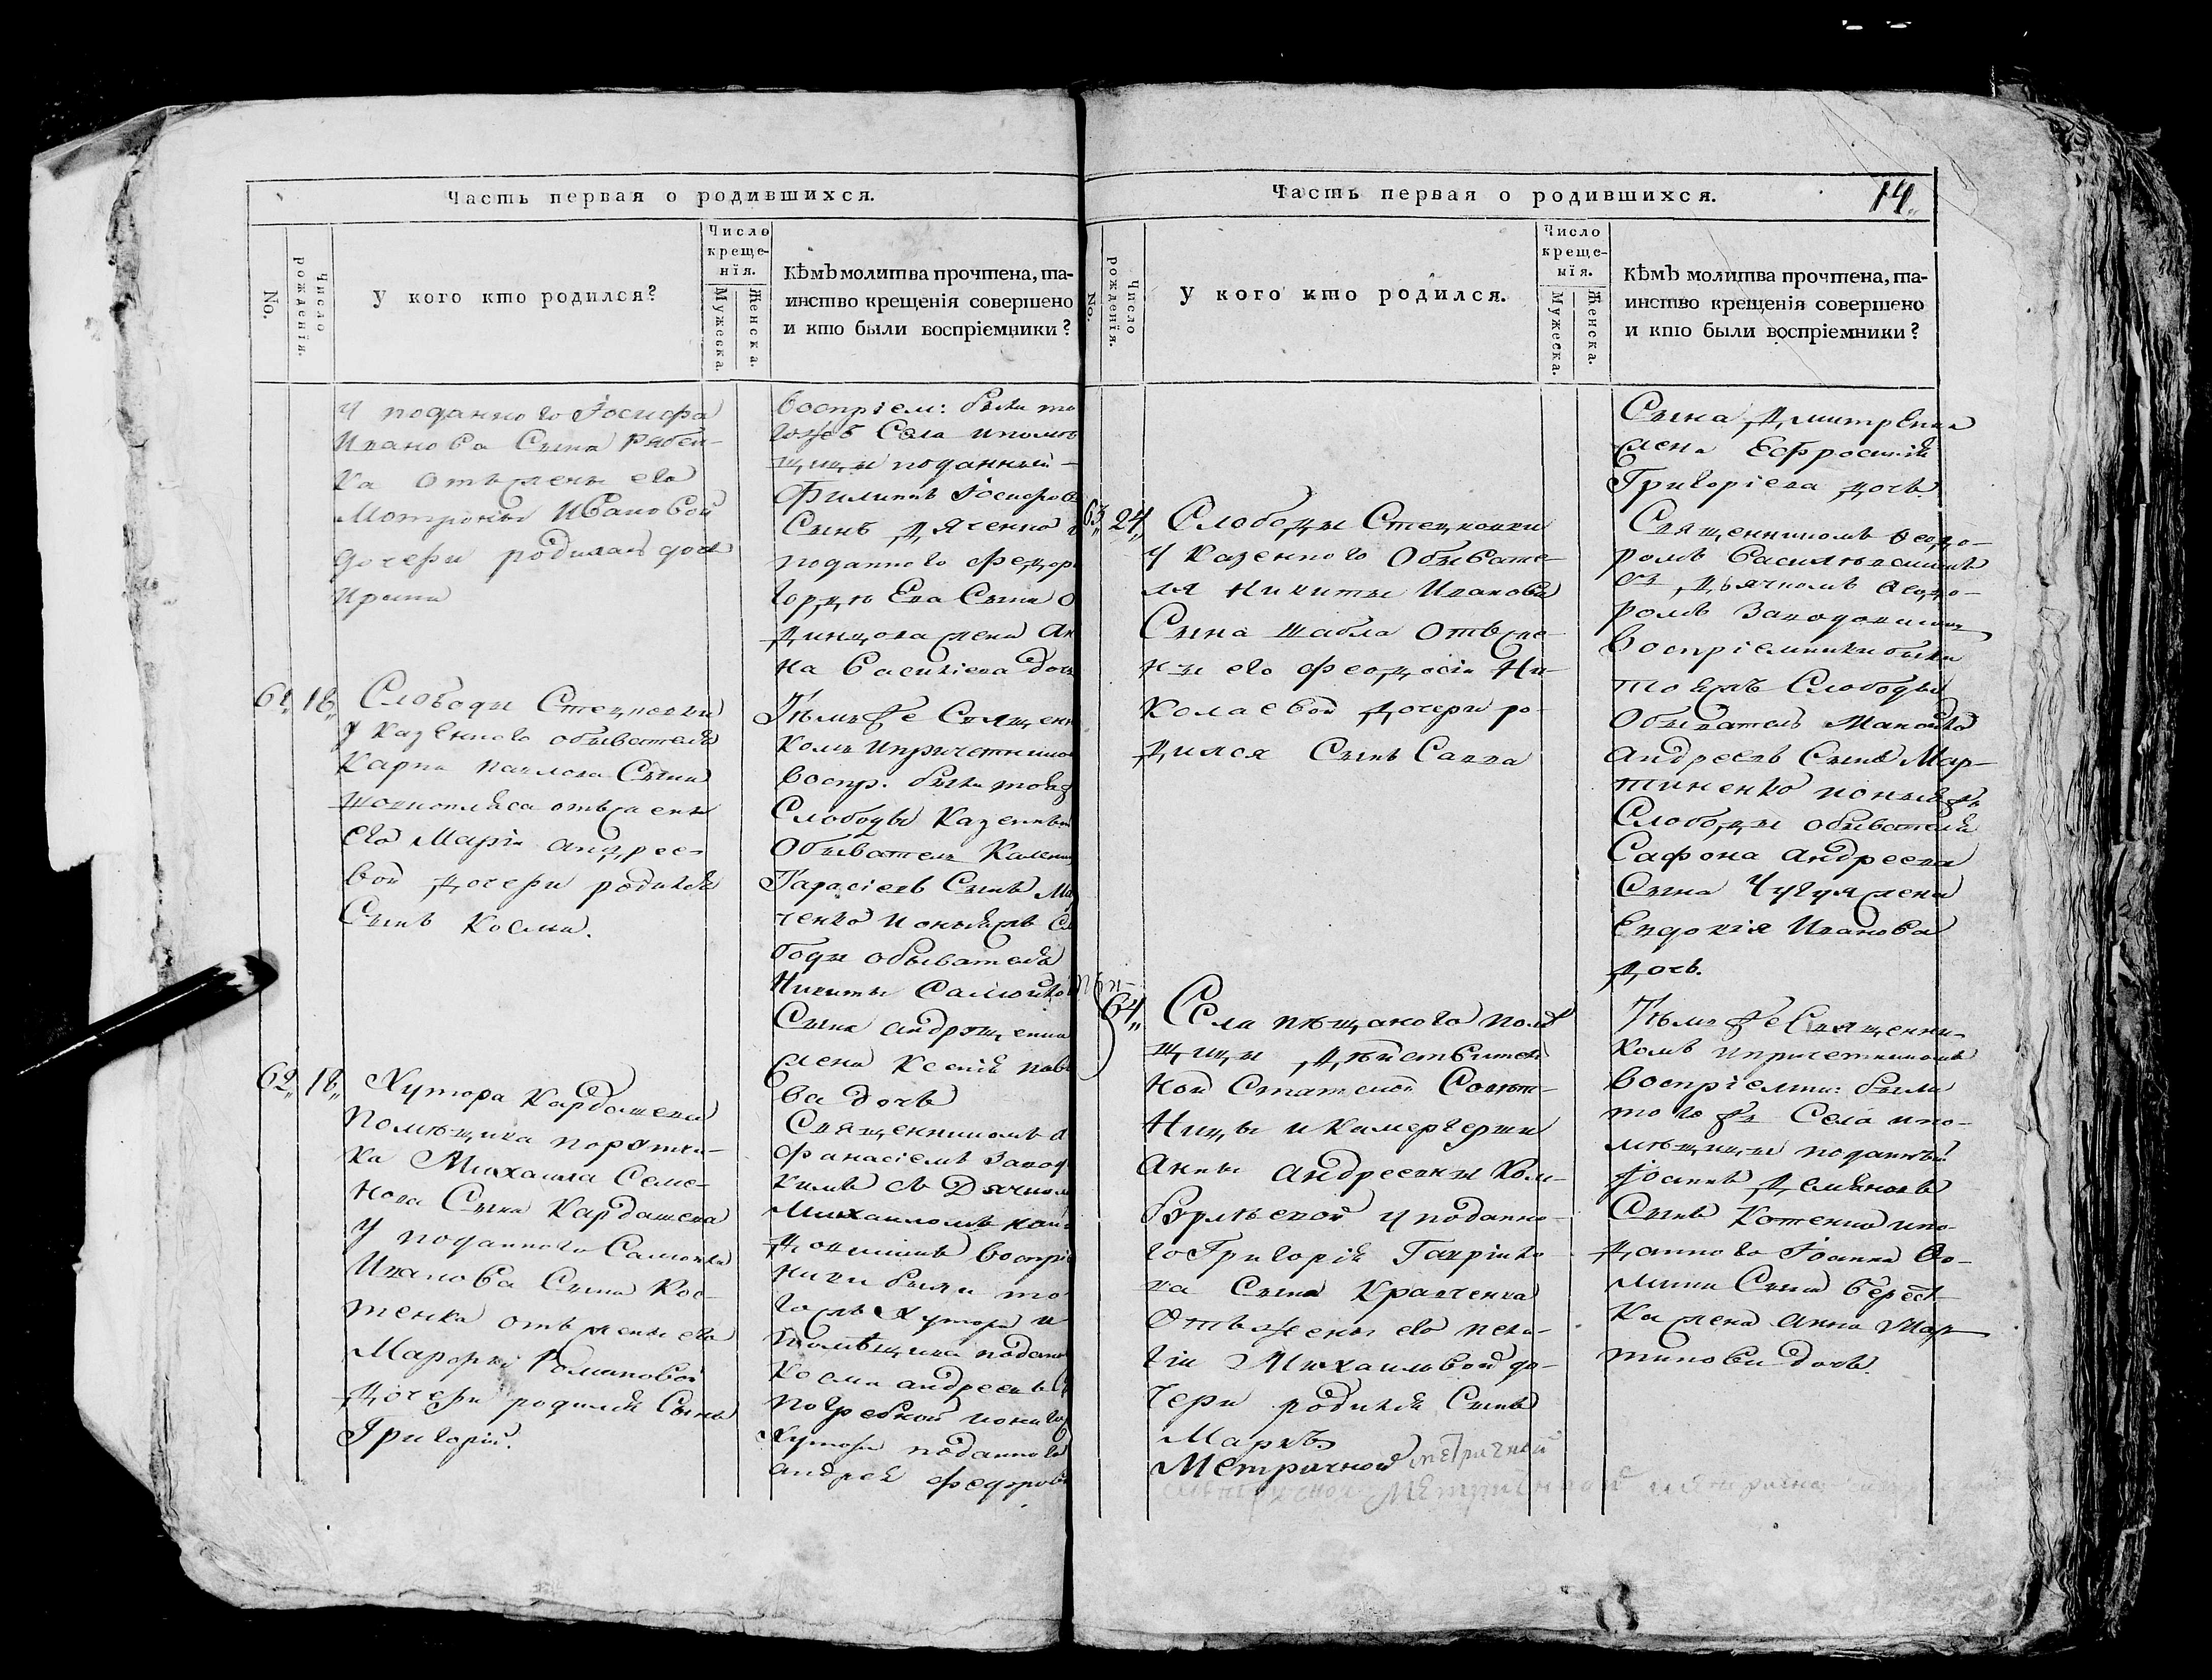 Часть первая о родившихся.
No.
Число рожденія.
У кого кто родился?
Число
креще-
нія.
Мужеска.
Женска.
Кѣмъ молитва прочтена, та-
инство крещенія совершено
и кто были воспріемники?
У поданного Іосифа
Иванова Сына
ка отъ жены его
Мотроны Ивановой
дочери родилась дочь
Ирина
воспріем: были то
гожъ Села ипомѣ
щицы поданный
Филиппъ Іосифов
Сынъ Дяченко
поданного Федор
Гордѣева Сына О
динцова жена Ан
на Василіева дочь
61 18 Слободы Стецковки
У Казенного обывателя
Карпа Павлова Сына
отъ жены
его Маріи Андрее-
вой дочери родился
Сынъ Косма.
Тѣмъ же Священн
комъ ипричетником
Воспр. были тояж
Слободы Казенный
Обыватель Калени
Тарасіевъ Сынъ
ченко ионыяжъ Сл
боды обывателя
Никиты Самойлов
Сына Андрющенка
жена Ксенія Павл
ва дочь
62 18 Хутора Кардашева
Помѣщика поручи-
ка Михаила Семе-
нова Сына Кардашева
У поданного Самойла
Иванова Сына Кос-
тенка отъ жены его
Марфы Романовой
дочери родился Сынъ
Григорій.
Священникомъ А
фанасіемъ Завод
кимъ съ Дячком
Михаиломъ
воспріе
ники были то
гожъ Хутора и
помѣщика подан
Косма Андреевъ С
Погребной ионаго
Хутора поданного
Андрея Федоров
Часть первая о родившихся.
14
No.
Число рожденія.
У кого кто родился.
Число
креще-
нія.
Мужеска.
Женска.
Кѣмъ молитва прочтена, та-
инство крещенія совершено
и кто были воспріемники?
Сына Дмитренка
жена Ефросинія
Григоріева дочь
63 24 Слободы Стецковки
У Казенного Обывате-
ля Никиты Иванова
Сына Шабла отъ же-
ны его Феодосіи Ни-
колаевой дочери ро-
дился Сынъ Савва
Священникомъ Ѳеодо-
ромъ Василковскимъ
съ Дьячкомъ Ѳеодо-
ромъ
Воспріемники были
тояжъ Слободы
Обыватель Мануйло
Андреевъ Сынъ Мар-
тиненко ионыяжъ
Слободы обывателя
Сафона Андреева
Сына Чугуя жена
Евдокія Иванова
дочь.
64 Села Пѣщаного помѣ
щицы Дѣйствител
ной Статской Совѣт-
Ницы и Камергерши
Анны Андреевны Ком-
бурлѣевой у поданно-
го Григорія Гаврило-
ва Сына Кравченка
отъ жены его Пела-
гіи Михаиловой до-
чери родился Сынъ
Маркъ
Метричной метричной
Тѣмъ же Священни-
комъ ипричетникомъ
Воспріемни: были
того жъ Села ипо-
мѣщицы поданный
Іоаннъ Демяновъ
Сынъ Котенко ипо-
данного Іоанна Ѳо-
мина Сына Берест
ка жена Анна Мар
тинова дочь.
Метричной